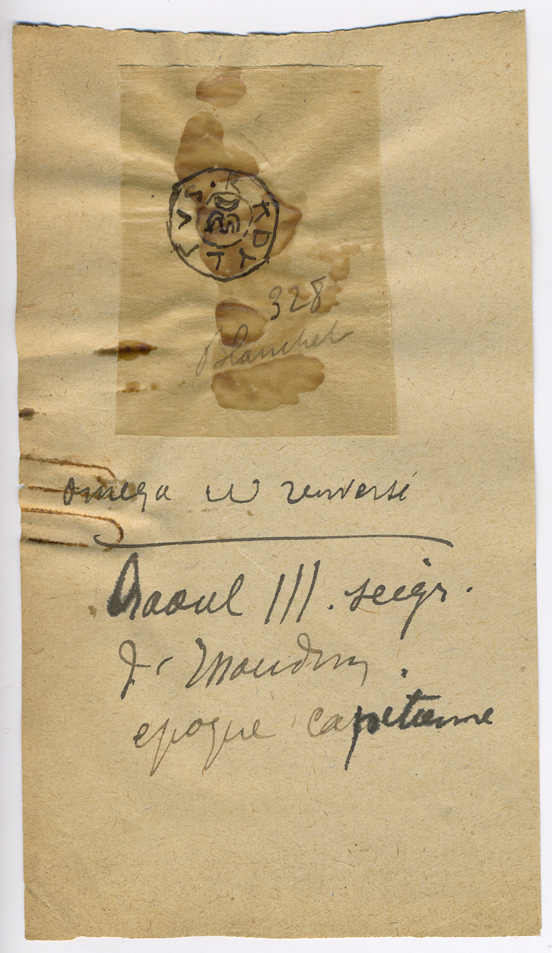 328
Blanchet
omega ω renversé
Raoul III. seigr.
d'Issoudun.
epoque capetienne